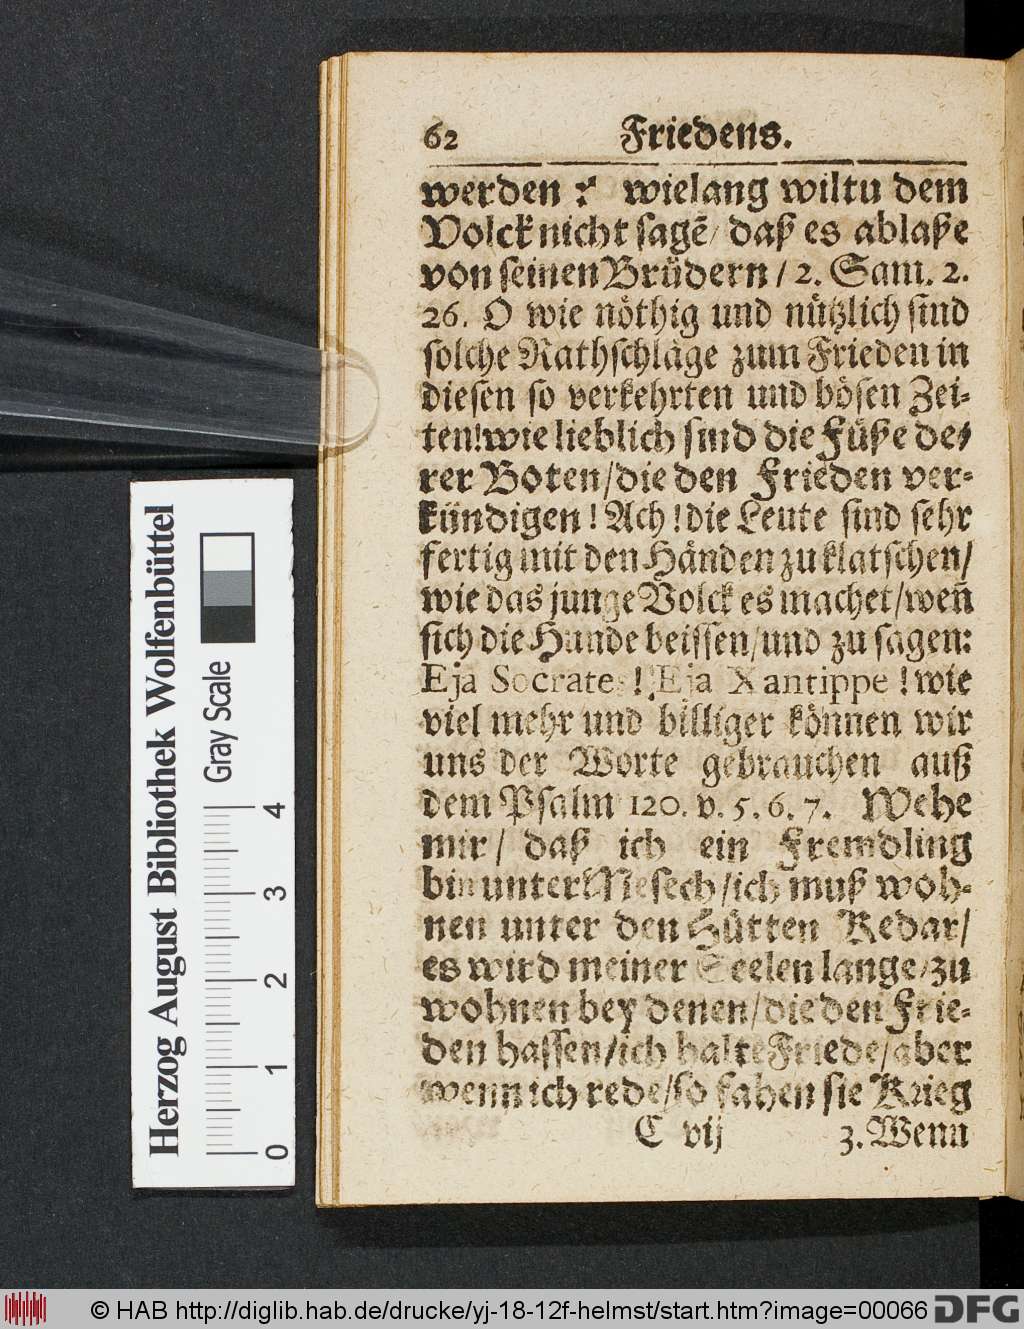 62 Friedens.
werden? wielang wiltu dem
Volck nicht sagẽ/ daß es ablaße
von seinen Brüdern/ 2. Sam. 2.
26. O wie nöthig und nützlich sind
solche Rathschläge zum Frieden in
diesen so verkehrten und bösen Zei-
ten! wie lieblich sind die Füße de-
rer Boten/ die den Frieden ver-
kündigen! Ach! die Leute sind sehr
fertig mit den Händen zu klatschen/
wie das junge Volck es machet/ weñ
sich die Hunde beissen/ und zu sagen:
Eja Socrates! Eja Xantippe! wie
viel mehr und billiger können wir
uns der Worte gebrauchen auß
dem Psalm 120. v. 5. 6. 7. Wehe
mir/ daß ich ein Fremdling
bin unter Mesech/ ich muß woh-
nen unter den Hütten Kedar/
es wird meiner Seelen lange/ zu
wohnen bey denen/ die den Frie-
den hassen/ ich halte Friede/ aber
wenn ich rede/ so fahen sie Krieg
C vij 3. Wenn
Herzog August Bibliothek Wolfenbüttel
Gray Scale
0 1 2 3 4
© HAB http://diglib.hab.de/drucke/yj-18-12f-helmst/start.htm?image=00066
DFG